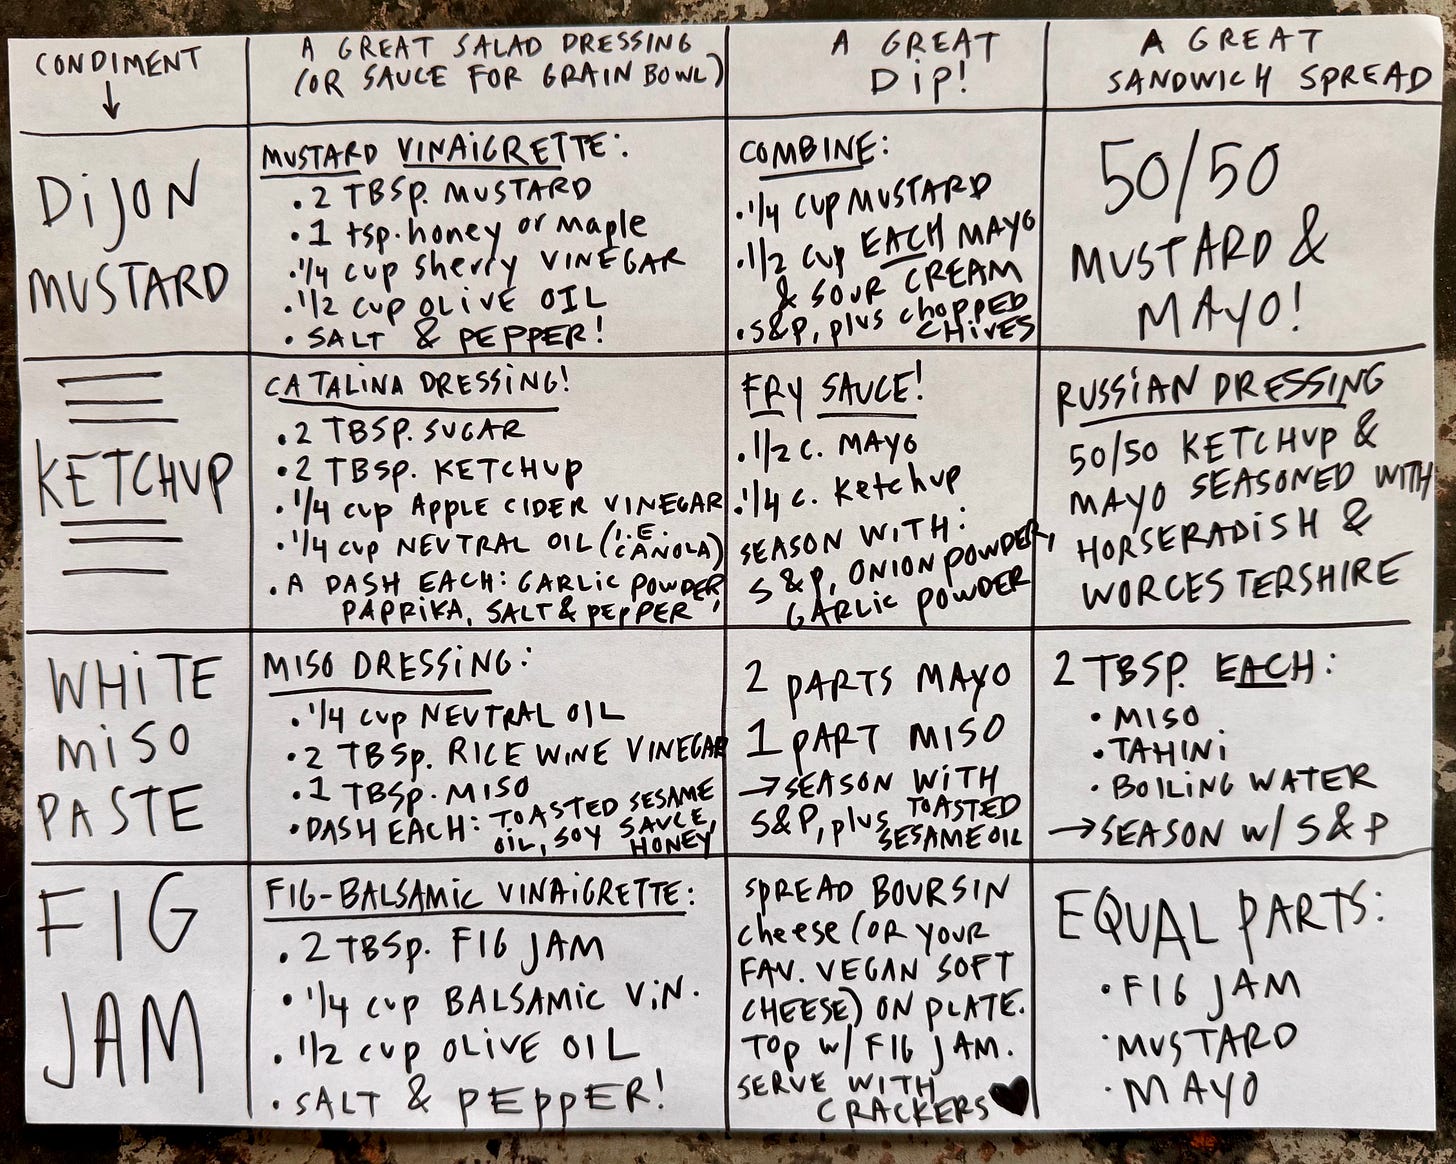 CONDIMENT
A GREAT SALAD DRESSING
(OR SAUCE FOR GRAIN BOWL)
A GREAT
DIP!
A GREAT
SANDWICH SPREAD
DIJON
MUSTARD
MUSTARD VINAIGRETTE:
• 2 TBSP. MUSTARD
• 1 tsp. honey or maple
• 1/4 cup sherry VINEGAR
• 1/2 cup OLIVE OIL
• SALT & PEPPER!
COMBINE:
• 1/4 CUP MUSTARD
• 1/2 CUP EACH MAYO
& SOUR CREAM
• S&P, plus chopped
CHIVES
50/50
MUSTARD &
MAYO!
KETCHUP
CATALINA DRESSING!
• 2 TBSP. SUGAR
• 2 TBSP. KETCHUP
• 1/4 cup APPLE CIDER VINEGAR
• 1/4 cup NEUTRAL OIL (I.E.
CANOLA)
• A DASH EACH: GARLIC POWDER,
PAPRIKA, SALT & PEPPER
FRY SAUCE!
• 1/2 C. MAYO
• 1/4 C. Ketchup
SEASON WITH:
S&P, ONION POWDER,
GARLIC POWDER
RUSSIAN DRESSING
50/50 KETCHUP &
MAYO SEASONED WITH
HORSERADISH &
WORCESTERSHIRE
WHITE
MISO
PASTE
MISO DRESSING:
• 1/4 cup NEUTRAL OIL
• 2 TBSP. RICE WINE VINEGAR
• 1 TBSP. MISO
• DASH EACH: TOASTED SESAME
OIL, SOY SAUCE,
HONEY
2 PARTS MAYO
1 PART MISO
→ SEASON WITH
S&P, plus TOASTED
SESAME OIL
2 TBSP. EACH:
• MISO
• TAHINI
• BOILING WATER
→ SEASON W/ S&P
FIG
JAM
FIG-BALSAMIC VINAIGRETTE:
• 2 TBSP. FIG JAM
• 1/4 cup BALSAMIC VIN.
• 1/2 cup OLIVE OIL
• SALT & PEPPER!
SPREAD BOURSIN
cheese (OR YOUR
FAV. VEGAN SOFT
CHEESE) ON PLATE.
TOP W/ FIG JAM.
SERVE WITH
CRACKERS ♥
EQUAL PARTS:
• FIG JAM
• MUSTARD
• MAYO